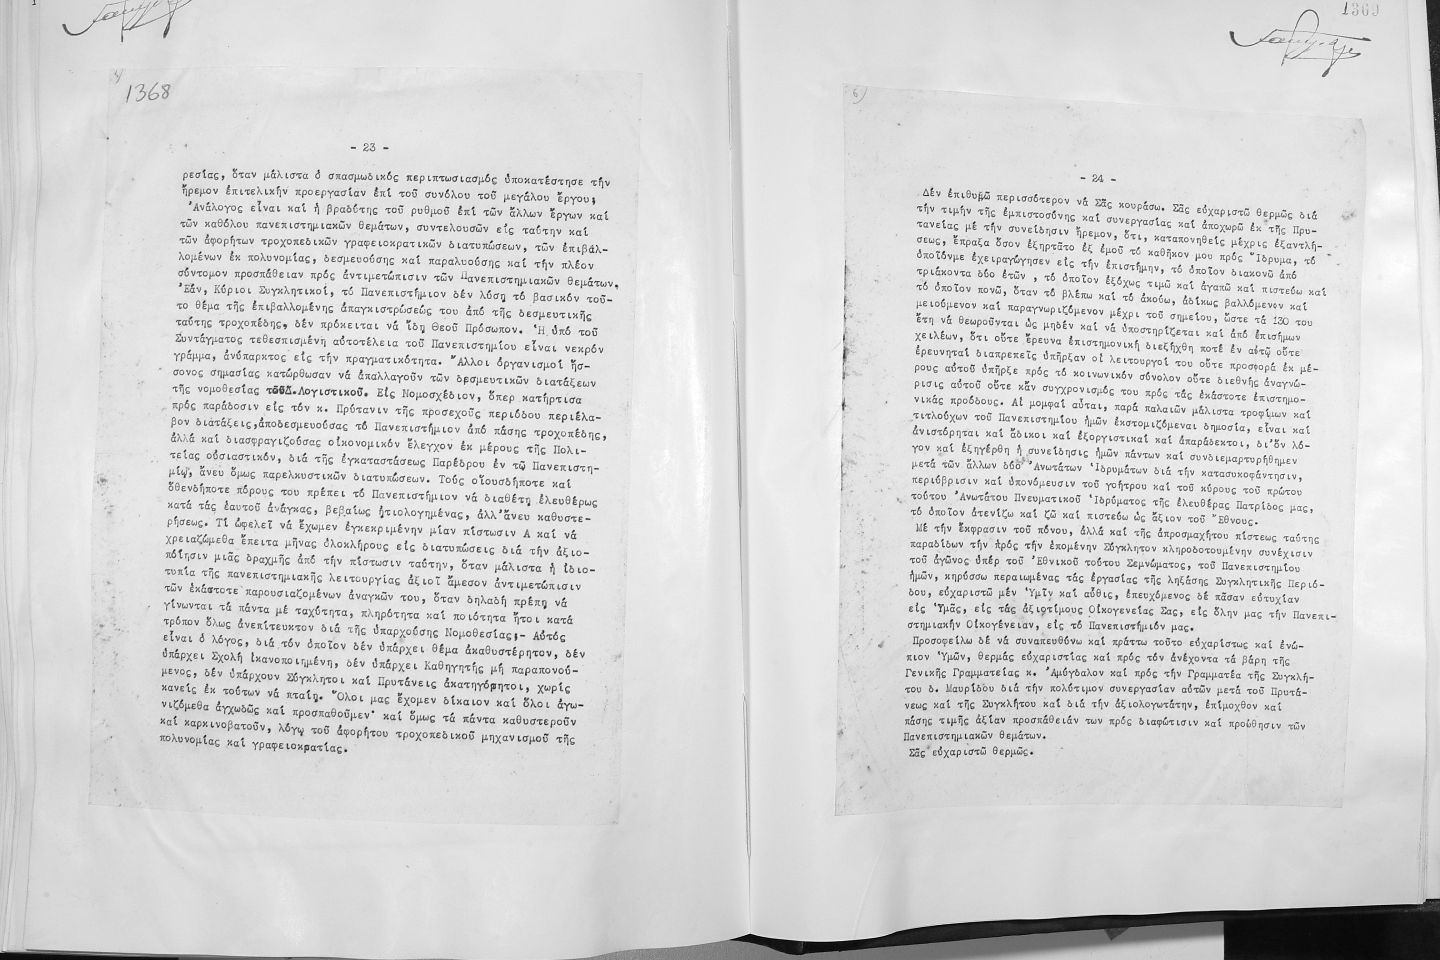 1368
- 23 -
ρεσίας, ὅταν μάλιστα ὁ σπασμωδικός περιπτωσιασμός ὑποκατέστησε τήν
ἤρεμον ἐπιτελικήν προεργασίαν ἐπί τοῦ συνόλου τοῦ μεγάλου ἔργου;
Ἀνάλογος εἶναι καί ἡ βραδύτης τοῦ ρυθμοῦ ἐπί τῶν ἄλλων ἔργων καί
τῶν καθόλου πανεπιστημιακῶν θεμάτων, συντελουσῶν εἰς ταύτην καί
τῶν ἀφορήτων τροχοπεδικῶν γραφειοκρατικῶν διατυπώσεων, τῶν ἐπιβαλ-
λομένων ἐκ πολυνομίας, δεσμευούσης καί παραλυούσης καί τήν πλέον
σύντομον προσπάθειαν πρός ἀντιμετώπισιν τῶν Πανεπιστημιακῶν θεμάτων.
Ἐάν, Κύριοι Συγκλητικοί, τό Πανεπιστήμιον δέν λύσῃ τό βασικόν τοῦ-
το θέμα τῆς ἐπιβαλλομένης ἀπαγκιστρώσεώς του ἀπό τῆς δεσμευτικῆς
ταύτης τροχοπέδης, δέν πρόκειται νά ἴδῃ Θεοῦ Πρόσωπον. Ἡ ὑπό τοῦ
Συντάγματος τεθεσπισμένη αὐτοτέλεια τοῦ Πανεπιστημίου εἶναι νεκρόν
γράμμα, ἀνύπαρκτος εἰς τήν πραγματικότητα. Ἄλλοι ὀργανισμοί ἥσ-
σονος σημασίας κατώρθωσαν νά ἀπαλλαγοῦν τῶν δεσμευτικῶν διατάξεων
τῆς νομοθεσίας τοῦ Δ.Λογιστικοῦ. Εἰς Νομοσχέδιον, ὅπερ κατήρτισα
πρός παράδοσιν εἰς τόν κ. Πρύτανιν τῆς προσεχοῦς περιόδου περιέλα-
βον διατάξεις,ἀποδεσμευούσας τό Πανεπιστήμιον ἀπό πάσης τροχοπέδης,
ἀλλά καί διασφραγιζούσας οἰκονομικόν ἔλεγχον ἐκ μέρους τῆς Πολι-
τείας οὐσιαστικόν, διά τῆς ἐγκαταστάσεως Παρέδρου ἐν τῷ Πανεπιστη-
μίῳ, ἄνευ ὅμως παρελκυστικῶν διατυπώσεων. Τούς οἱουσδήποτε καί
ὅθενδήποτε πόρους του πρέπει τό Πανεπιστήμιον νά διαθέτῃ ἐλευθέρως
κατά τάς ἑαυτοῦ ἀνάγκας, βεβαίως ᾐτιολογημένας, ἀλλ'ἄνευ καθυστε-
ρήσεως. Τί ὠφελεῖ νά ἔχωμεν ἐγκεκριμένην μίαν πίστωσιν Α καί νά
χρειαζώμεθα ἔπειτα μῆνας ὁλοκλήρους εἰς διατυπώσεις διά τήν ἀξιο-
ποίησιν μιᾶς δραχμῆς ἀπό τήν πίστωσιν ταύτην, ὅταν μάλιστα ἡ ἰδιο-
τυπία τῆς πανεπιστημιακῆς λειτουργίας ἀξιοῖ ἄμεσον ἀντιμετώπισιν
τῶν ἑκάστοτε παρουσιαζομένων ἀναγκῶν του, ὅταν δηλαδή πρέπῃ νά
γίνωνται τά πάντα μέ ταχύτητα, πληρότητα καί ποιότητα ἤτοι κατά
τρόπον ὅλως ἀνεπίτευκτον διά τῆς ὑπαρχούσης Νομοθεσίας;- Αὐτός
εἶναι ὁ λόγος, διά τόν ὁποῖον δέν ὑπάρχει θέμα ἀκαθυστέρητον, δέν
ὑπάρχει Σχολή ἱκανοποιημένη, δέν ὑπάρχει Καθηγητής μή παραπονού-
μενος, δέν ὑπάρχουν Σύγκλητοι καί Πρυτάνεις ἀκατηγόρητοι, χωρίς
κανείς ἐκ τούτων νά πταίῃ. Ὅλοι μας ἔχομεν δίκαιον καί ὅλοι ἀγω-
νιζόμεθα ἀγχωδῶς καί προσπαθοῦμεν· καί ὅμως τά πάντα καθυστεροῦν
καί καρκινοβατοῦν, λόγῳ τοῦ ἀφορήτου τροχοπεδικοῦ μηχανισμοῦ τῆς
πολυνομίας καί γραφειοκρατίας.
1369
6)
- 24 -
Δέν ἐπιθυμῶ περισσότερον νά Σᾶς κουράσω. Σᾶς εὐχαριστῶ θερμῶς διά
τήν τιμήν τῆς ἐμπιστοσύνης καί συνεργασίας καί ἀποχωρῶ ἐκ τῆς Πρυ-
τανείας μέ τήν συνείδησιν ἤρεμον, ὅτι, καταπονηθείς μέχρις ἐξαντλή-
σεως, ἔπραξα ὅσον ἐξηρτᾶτο ἐξ ἐμοῦ τό καθῆκον μου πρός Ἵδρυμα, τό
ὁποῖόν με ἐχειραγώγησεν εἰς τήν ἐπιστήμην, τό ὁποῖον διακονῶ ἀπό
τριάκοντα δύο ἐτῶν , τό ὁποῖον ἐξόχως τιμῶ καί ἀγαπῶ καί πιστεύω καί
τό ὁποῖον πονῶ, ὅταν τό βλέπω καί τό ἀκούω, ἀδίκως βαλλόμενον καί
μειούμενον καί παραγνωριζόμενον μέχρι τοῦ σημείου, ὥστε τά 130 του
ἔτη νά θεωροῦνται ὡς μηδέν καί νά ὑποστηρίζεται καί ἀπό ἐπισήμων
χειλέων, ὅτι οὔτε ἔρευνα ἐπιστημονική διεξήχθη ποτέ ἐν αὐτῷ οὔτε
ἐρευνηταί διαπρεπεῖς ὑπῆρξαν οἱ λειτουργοί του οὔτε προσφορά ἐκ μέ-
ρους αὐτοῦ ὑπῆρξε πρός τό κοινωνικόν σύνολον οὔτε διεθνής ἀναγνώ-
ρισις αὐτοῦ οὔτε κἄν συγχρονισμός του πρός τάς ἑκάστοτε ἐπιστημο-
νικάς προόδους. Αἱ μομφαί αὗται, παρά παλαιῶν μάλιστα τροφίμων καί
τιτλούχων τοῦ Πανεπιστημίου ἡμῶν ἐκστομιζόμεναι δημοσίᾳ, εἶναι καί
ἀνιστόρηται καί ἄδικοι καί ἐξοργιστικαί καί ἀπαράδεκτοι, δι'ὅν λό-
γον καί ἐξηγέρθη ἡ συνείδησις ἡμῶν πάντων καί συνδιεμαρτυρήθημεν
μετά τῶν ἄλλων δύο Ἀνωτάτων Ἱδρυμάτων διά τήν κατασυκοφάντησιν,
περιύβρισιν καί ὑπονόμευσιν τοῦ γοήτρου καί τοῦ κύρους τοῦ πρώτου
τούτου Ἀνωτάτου Πνευματικοῦ Ἱδρύματος τῆς ἐλευθέρας Πατρίδος μας,
τό ὁποῖον ἀτενίζω καί ζῶ καί πιστεύω ὡς ἄξιον τοῦ Ἔθνους.
Μέ τήν ἔκφρασιν τοῦ πόνου, ἀλλά καί τῆς ἀπροσμαχήτου πίστεως ταύτης
παραδίδων τήν πρός τήν ἑπομένην Σύγκλητον κληροδοτουμένην συνέχισιν
τοῦ ἀγῶνος ὑπέρ τοῦ Ἐθνικοῦ τούτου Σεμνώματος, τοῦ Πανεπιστημίου
ἡμῶν, κηρύσσω περαιωμένας τάς ἐργασίας τῆς ληξάσης Συγκλητικῆς Περιό-
δου, εὐχαριστῶ μέν Ὑμῖν καί αὖθις, ἐπευχόμενος δέ πᾶσαν εὐτυχίαν
εἰς Ὑμᾶς, εἰς τάς ἀξιοτίμους Οἰκογενείας Σας, εἰς ὅλην μας τήν Πανεπι-
στημιακήν Οἰκογένειαν, εἰς τό Πανεπιστήμιόν μας.
Προσοφείλω δέ νά συναπευθύνω καί πράττω τοῦτο εὐχαρίστως καί ἐνώ-
πιον Ὑμῶν, θερμάς εὐχαριστίας καί πρός τόν ἀνέχοντα τά βάρη τῆς
Γενικῆς Γραμματείας κ. Ἀμύγδαλον καί πρός τήν Γραμματέα τῆς Συγκλή-
του δ. Μαυρίδου διά τήν πολύτιμον συνεργασίαν αὐτῶν μετά τοῦ Πρυτά-
νεως καί τῆς Συγκλήτου καί διά τήν ἀξιολογωτάτην, ἐπίμοχθον καί
πάσης τιμῆς ἀξίαν προσπάθειάν των πρός διαφώτισιν καί προώθησιν τῶν
Πανεπιστημιακῶν θεμάτων.
Σᾶς εὐχαριστῶ θερμῶς.